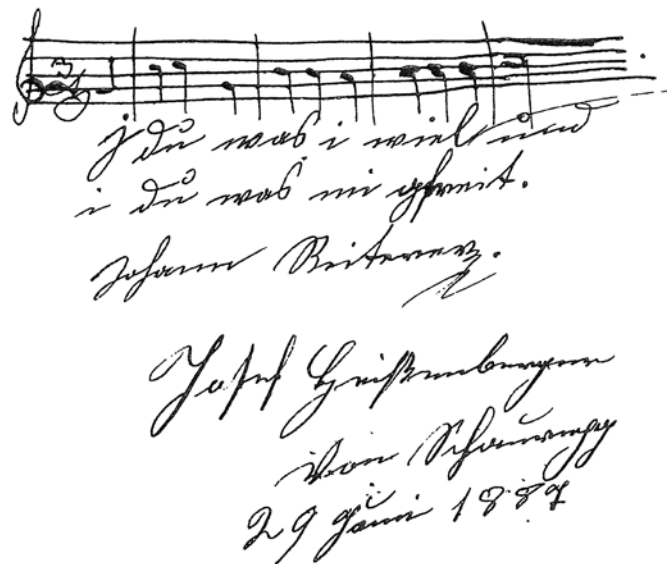 I du was i wiel und
i du was mi gfreit.
Johann Reiterer.
Josef Heißenberger
Von Schauregg
29 Juni 1887